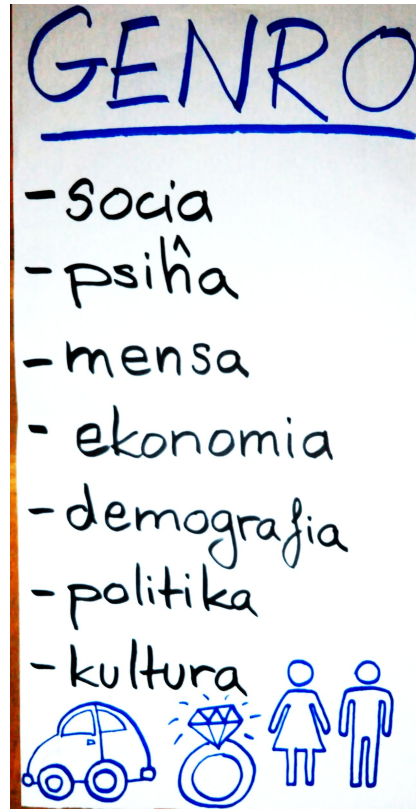 GENRO
- socia
- psiĥa
- mensa
- ekonomia
- demografia
- politika
- kultura